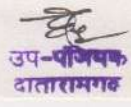 उप-पंजियक
दातारामगढ